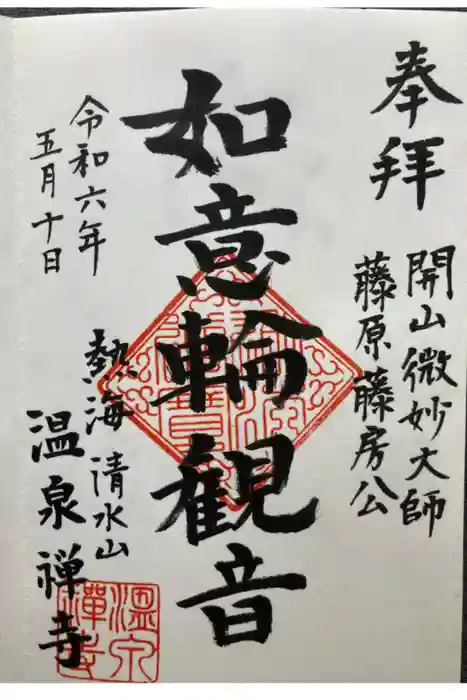 奉拝
開山微妙大師
藤原藤房公
如意輪観音
令和六年
五月十日
熱海 清水山
温泉禅寺
温泉
禅寺